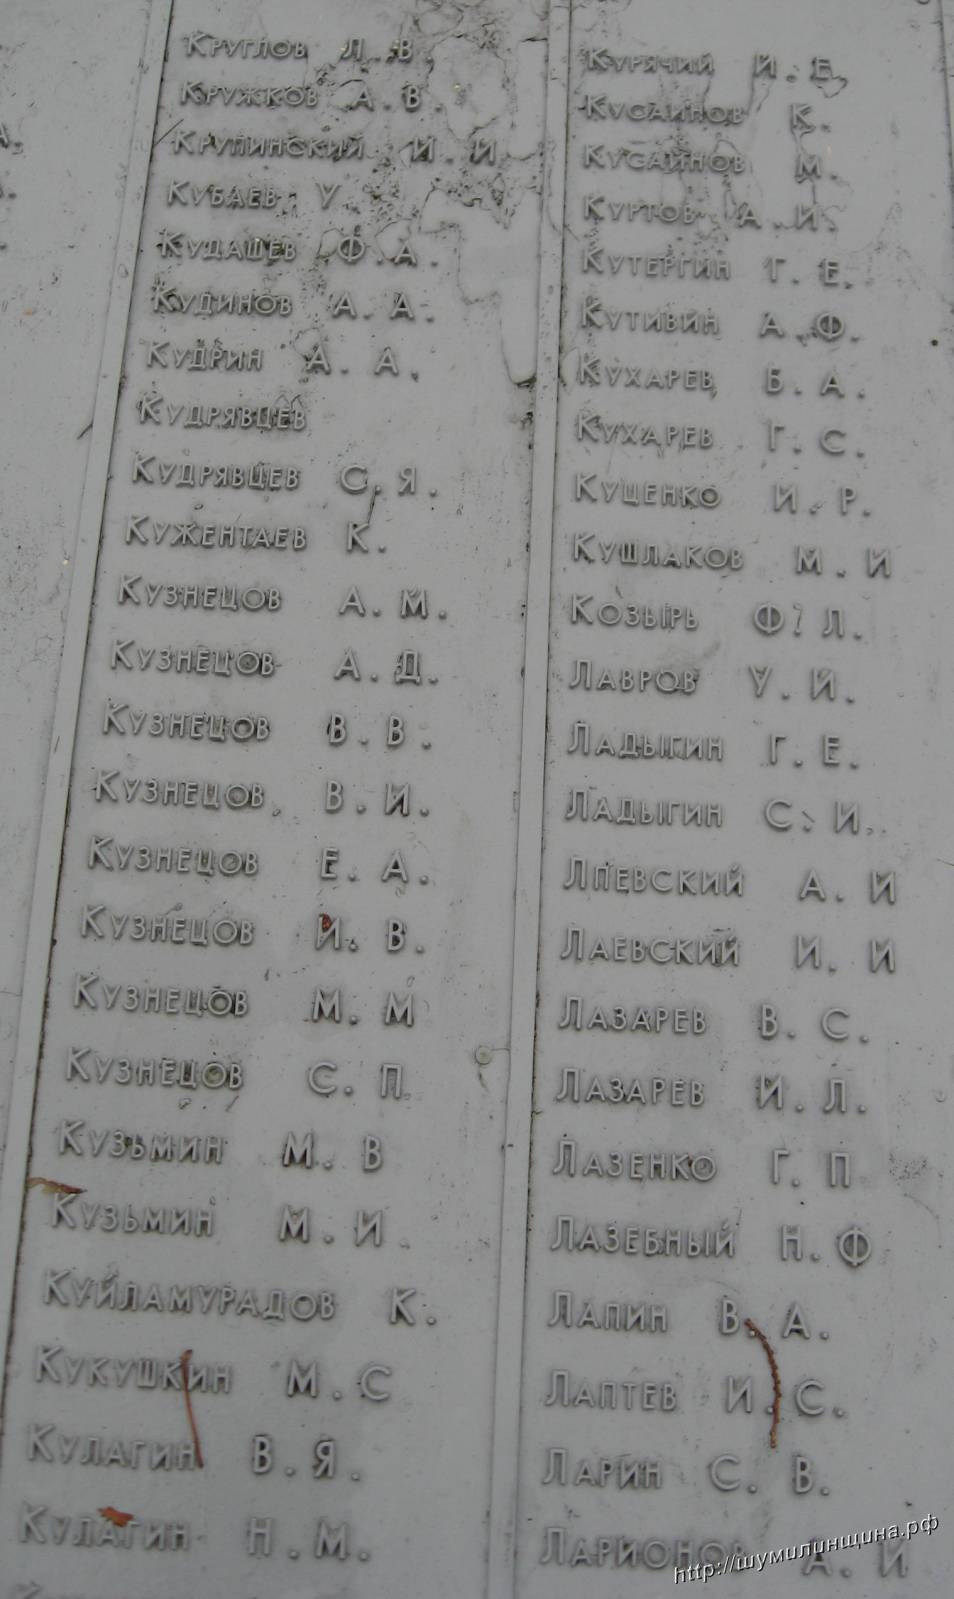 Круглов Л.В.
Кружков А.В.
Крупинский И.И
Кубаев У.
Кудашев Ф.А.
Кудинов А.А.
Кудрин А.А.
Кудрявцев
Кудрявцев С.Я.
Кужентаев К.
Кузнецов А.М.
Кузнецов А.Д.
Кузнецов В.В.
Кузнецов В.И.
Кузнецов Е.А.
Кузнецов И.В.
Кузнецов М.М
Кузнецов С.П
Кузьмин М.В
Кузьмин М.И.
Куйламурадов К.
Кукушкин М.С
Кулагин В.Я.
Кулагин Н.М.
Курячий И.Е.
Кусаинов К.
Кусаинов М.
Куртов А.И.
Кутергин Г.Е.
Кутивин А.Ф.
Кухарев Б.А.
Кухарев Г.С.
Куценко И.Р.
Кушлаков М.И
Козырь Ф.Л.
Лавров У.И.
Ладыгин Г.Е.
Ладыгин С.И.
Лпевский А.И
Лаевский И.И
Лазарев В.С.
Лазарев И.Л.
Лазенко Г.П
Лазебный Н.Ф
Лапин В.А.
Лаптев И.С.
Ларин С.В.
Ларионов А.И
http://шумилинщина.рф